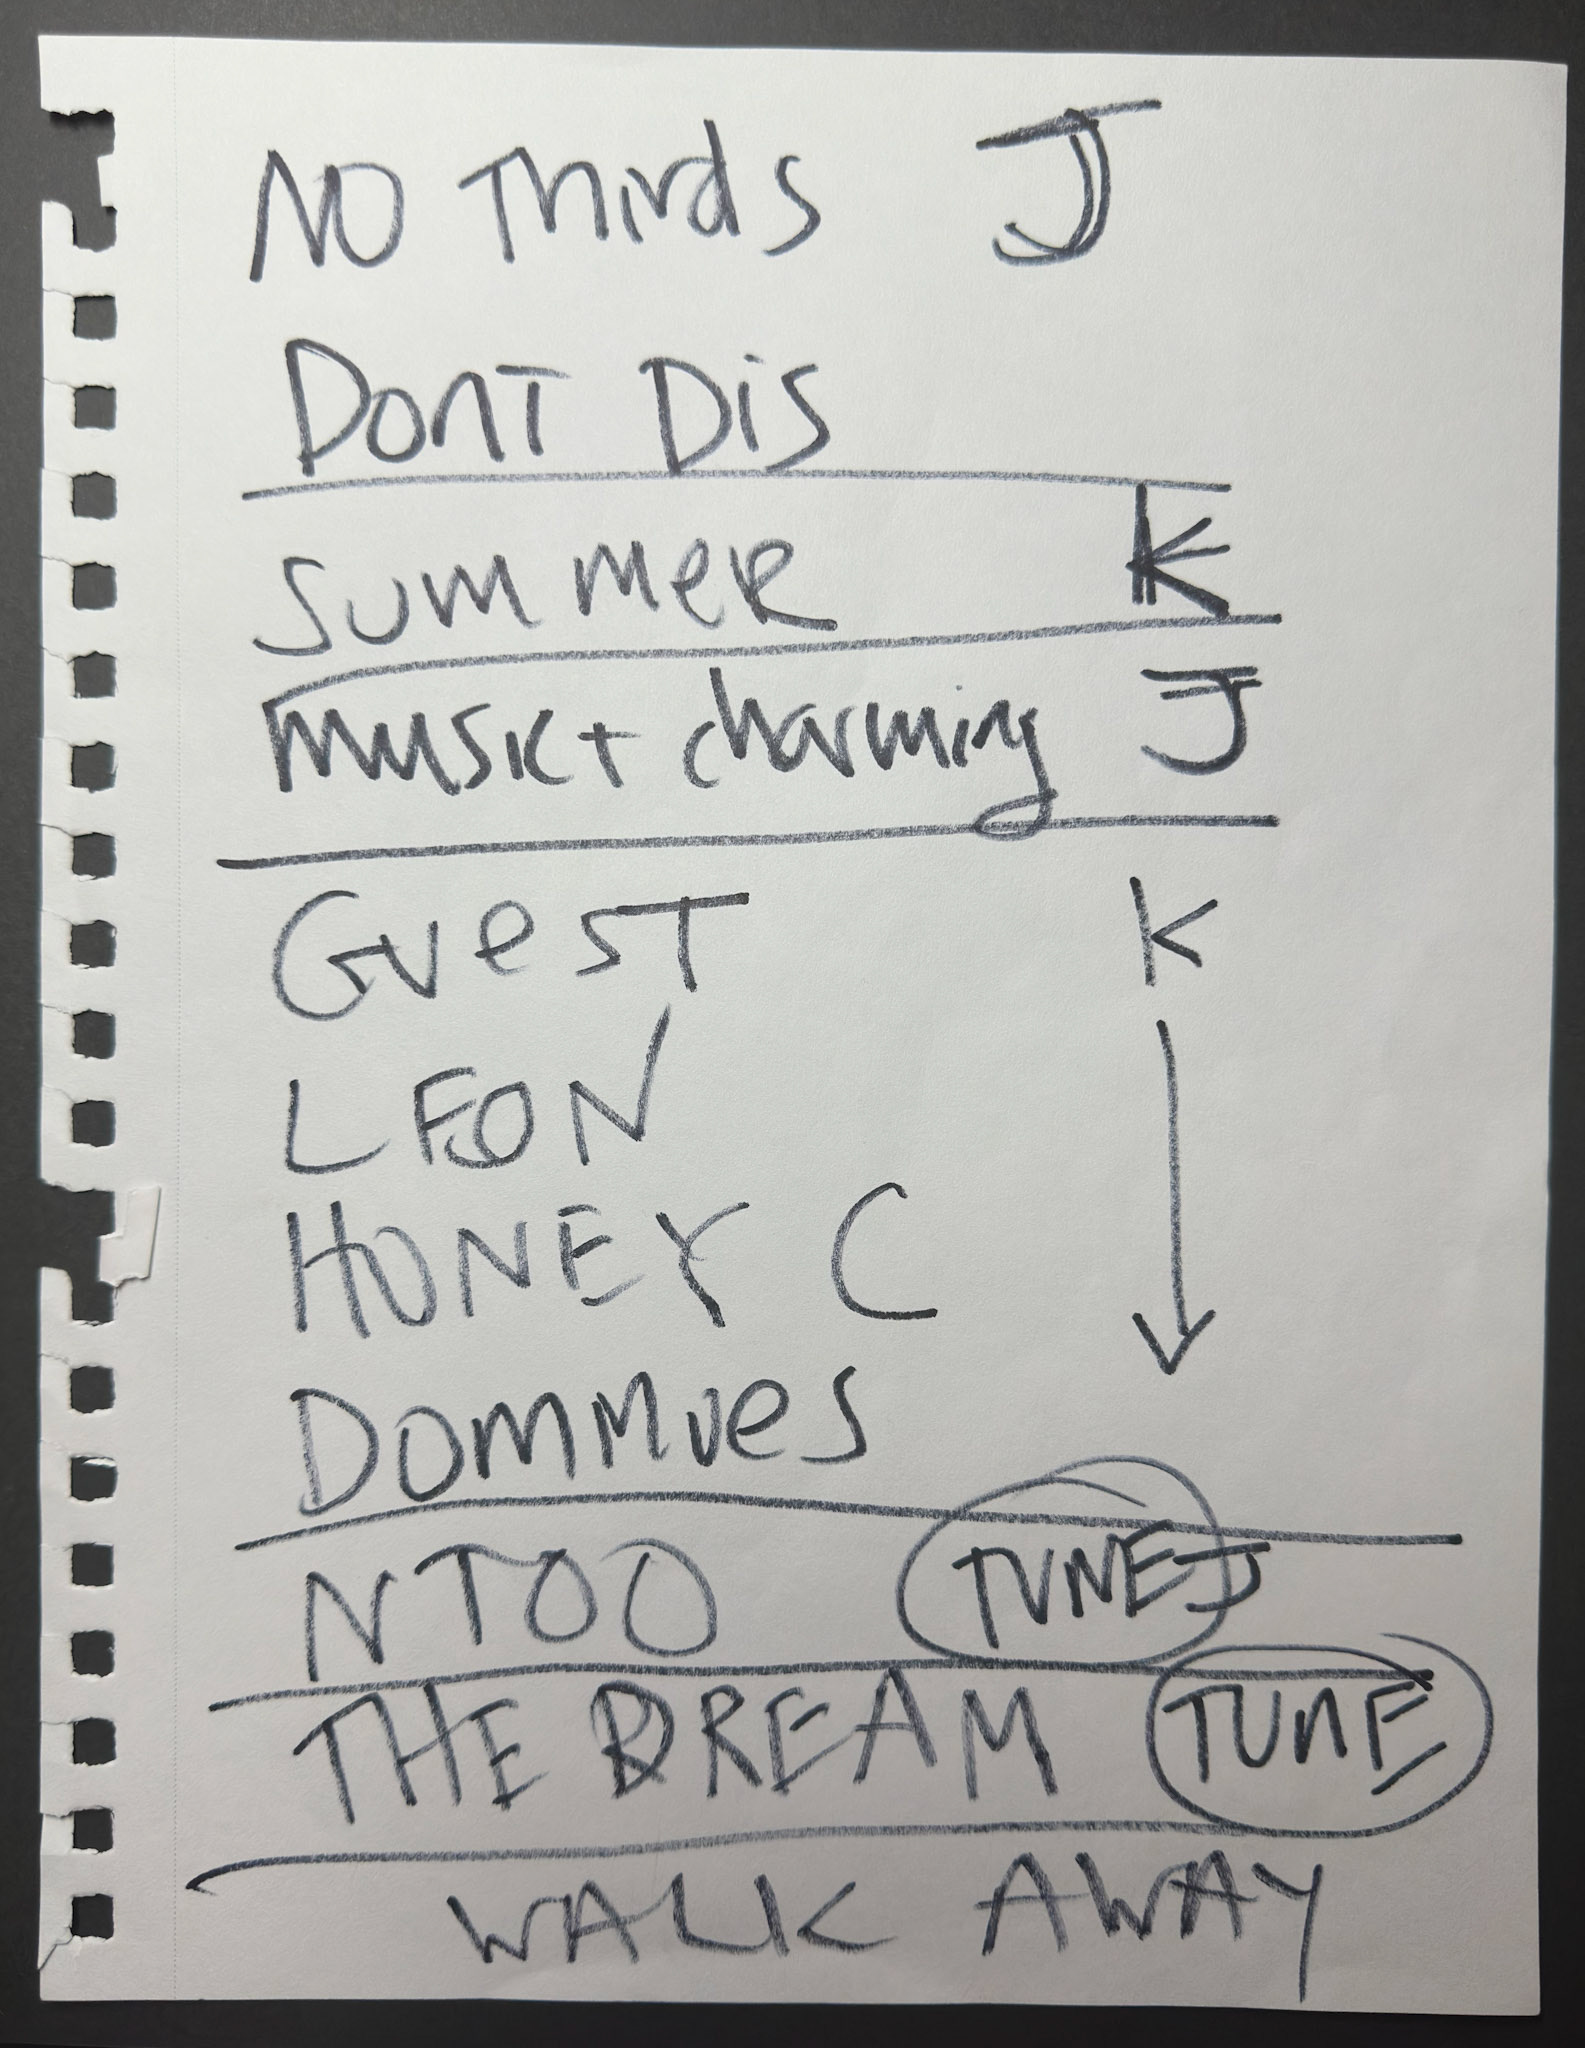 NO Thirds J
DonT Dis
Summer K
Music + charming J
GuesT K
LEON
HONEY C
Dommues
NTOO TUNE J
THE DREAM TUNE
WALK AWAY